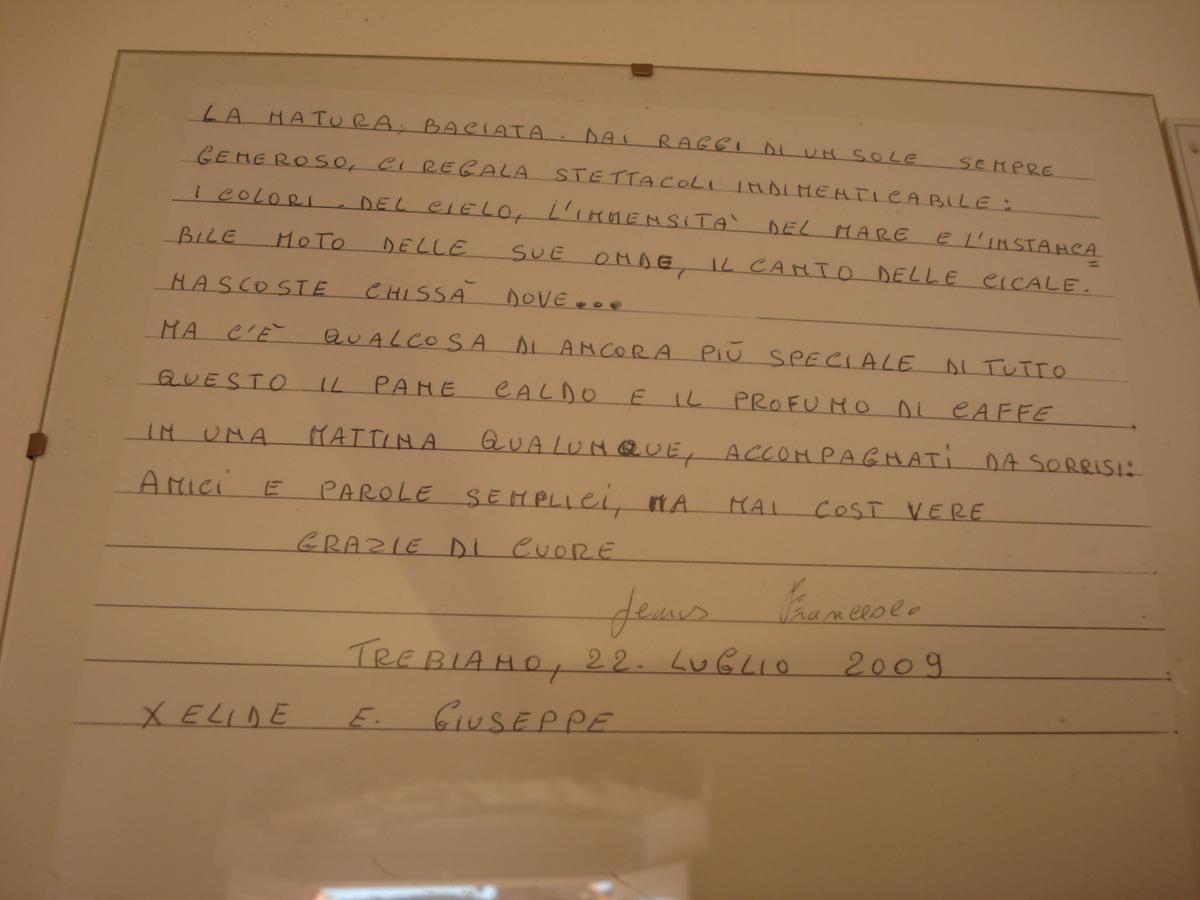 LA NATURA, BACIATA. DAI RAGGI DI UN SOLE SEMPRE
GENEROSO, CI REGALA STETTACOLI INDIMENTICABILE:
I COLORI. DEL CIELO, L'IMMENSITA' DEL MARE E L'INSTANCA=
BILE MOTO DELLE SUE ONDE, IL CANTO DELLE CICALE.
NASCOSTE CHISSÀ DOVE...
MA C'È QUALCOSA DI ANCORA PIÙ SPECIALE DI TUTTO
QUESTO IL PANE CALDO E IL PROFUMO DI CAFFE
IN UNA MATTINA QUALUNQUE, ACCOMPAGNATI DA SORRISI:
AMICI E PAROLE SEMPLICI, MA MAI COSI VERE
GRAZIE DI CUORE
Francesco
TREBIANO, 22. LUGLIO 2009
X ELIDE E. GIUSEPPE